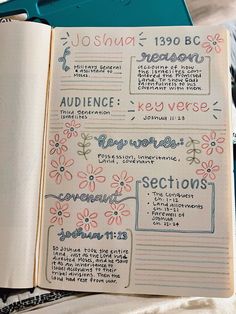 Joshua 1390 BC
Military General
assistant to
Moses
reason
account of how
the Israelites con-
quered the Promised
Land. To show God's
faithfulness to his
covenant with them
AUDIENCE:
Third Generation
Israelites
key verse
Joshua 11:23
key words:
Possession, inheritance,
Land, covenant
covenant
sections
• The Conquest
Ch. 1-12
• Land Allotments
Ch. 13-21
• Farewell of
Joshua
Ch. 22-24
Joshua 11:23
So Joshua took the entire
land, just as the Lord had
directed Moses, and he gave
it as an inheritance to
Israel according to their
tribal divisions. Then the
land had rest from war.